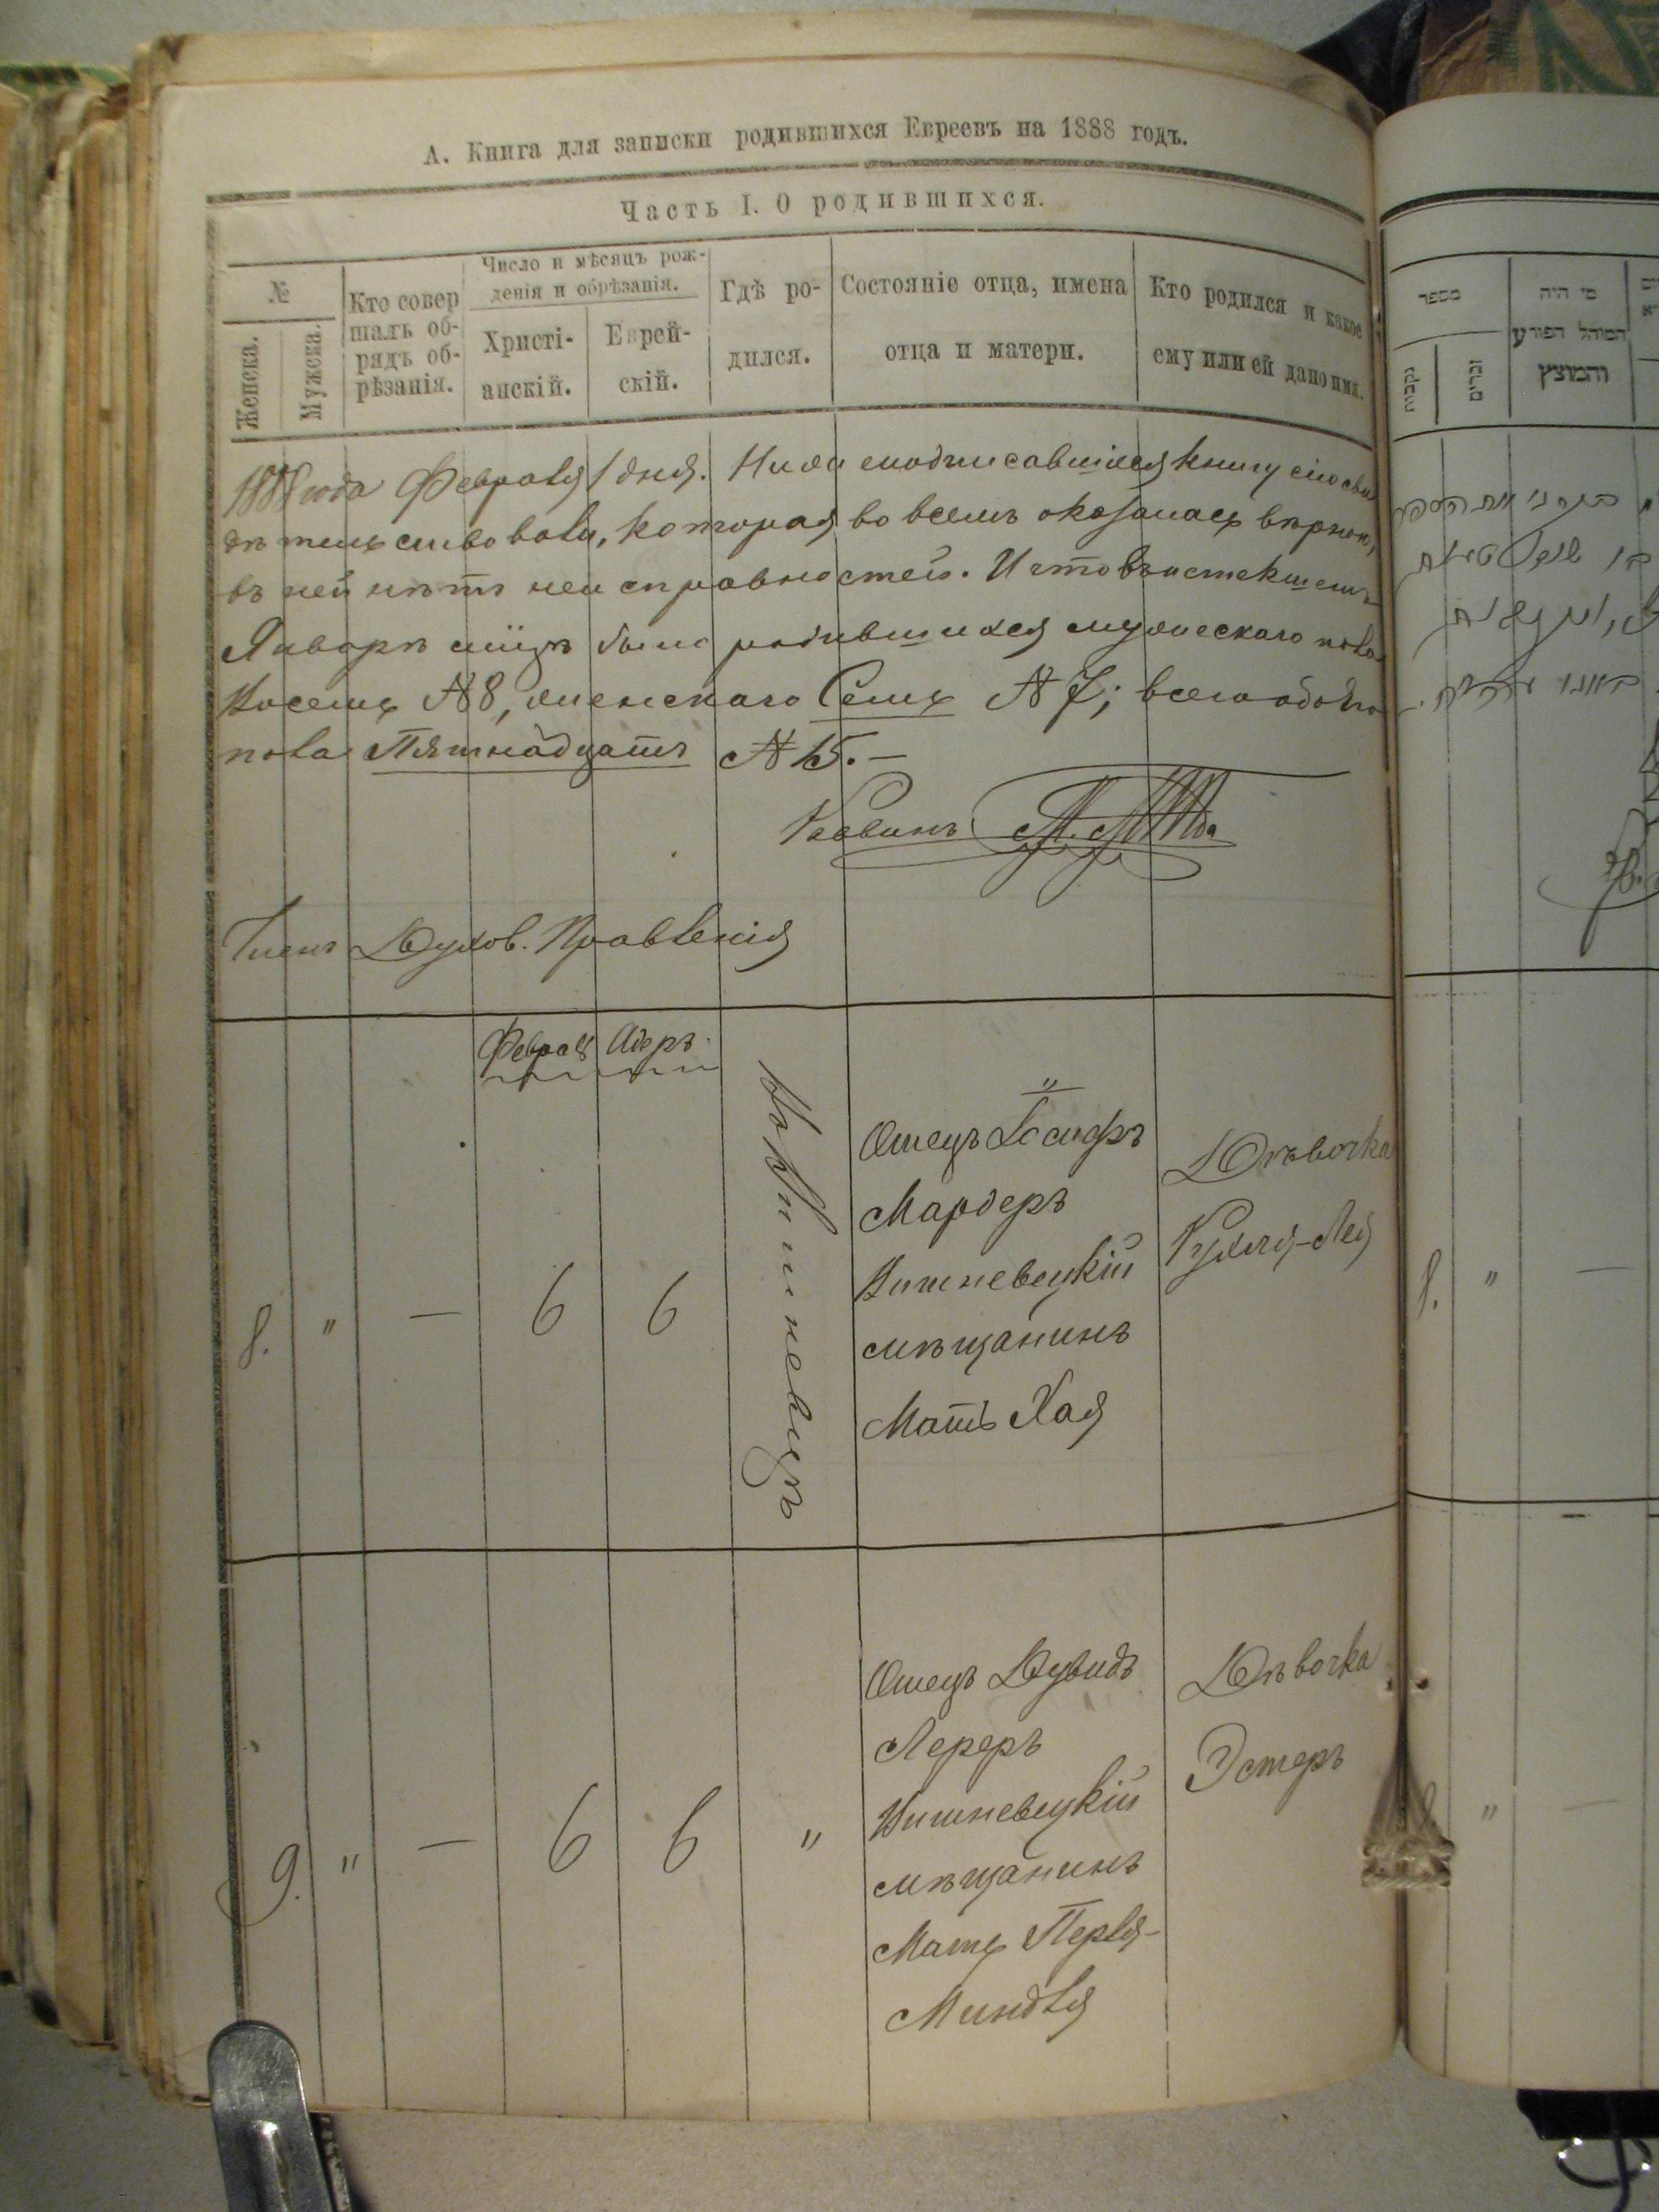 А. Книга для записки родившихся Евреевъ на 1888 годъ.
Часть I. О родившихся.
№
Женска.
Мужска.
Кто совер
шалъ об-
рядъ об-
рѣзанія.
Число и мѣсяцъ рож-
денія и обрѣзанія.
Христі-
анскій.
Еврей-
скій.
Гдѣ ро-
дился.
Состояніе отца, имена
отца и матери.
Кто родился и какое
ему или ей дано имя.
1888 года Февраля 1 дня. Нижеподписавшіеся книгу сію сви
дѣтельствовали, которая во всемъ оказалась вѣрною,
въ ней нѣтъ неисправностей. И что въ истекшемъ
Январѣ мцѣ было родившихся мужескаго пола
Восемь № 8, женскаго Семь № 7; всего обоего
пола Пятнадцать № 15. —
Раввинъ
Членъ Духов. Правленія
Февраль Адеръ
8. " — 6 6
Вишневцѣ
Отецъ Іосифъ
Мардеръ
Вишневецкій
мѣщанинъ
Мать Хая
Дѣвочка
Рухля-Лея
9. " — 6 6 "
Отецъ Дувидъ
Лереръ
Вишневецкій
мѣщанинъ
Мать Перля-
Миндля
Дѣвочка
Эстеръ
מספר
נקבות
זכרים
מי היה
המוהל הפורע
והמוצץ
8. " —
" —